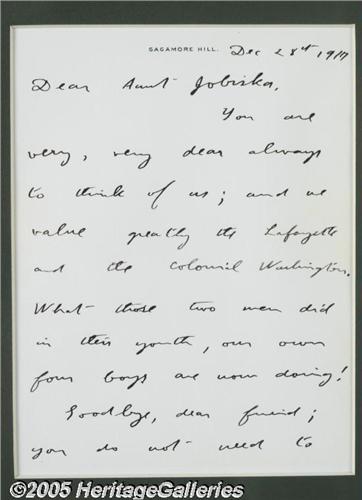 SAGAMORE HILL.
Dec 28th 1917
Dear Aunt Jobiska,
You are
very, very dear always
to think of us; and we
value greatly the Lafayette
and the Colonial Washington.
What those two men did
in their youth, our own
four boys are now doing!
Goodbye, dear friend;
you do not need to
©2005 HeritageGalleries